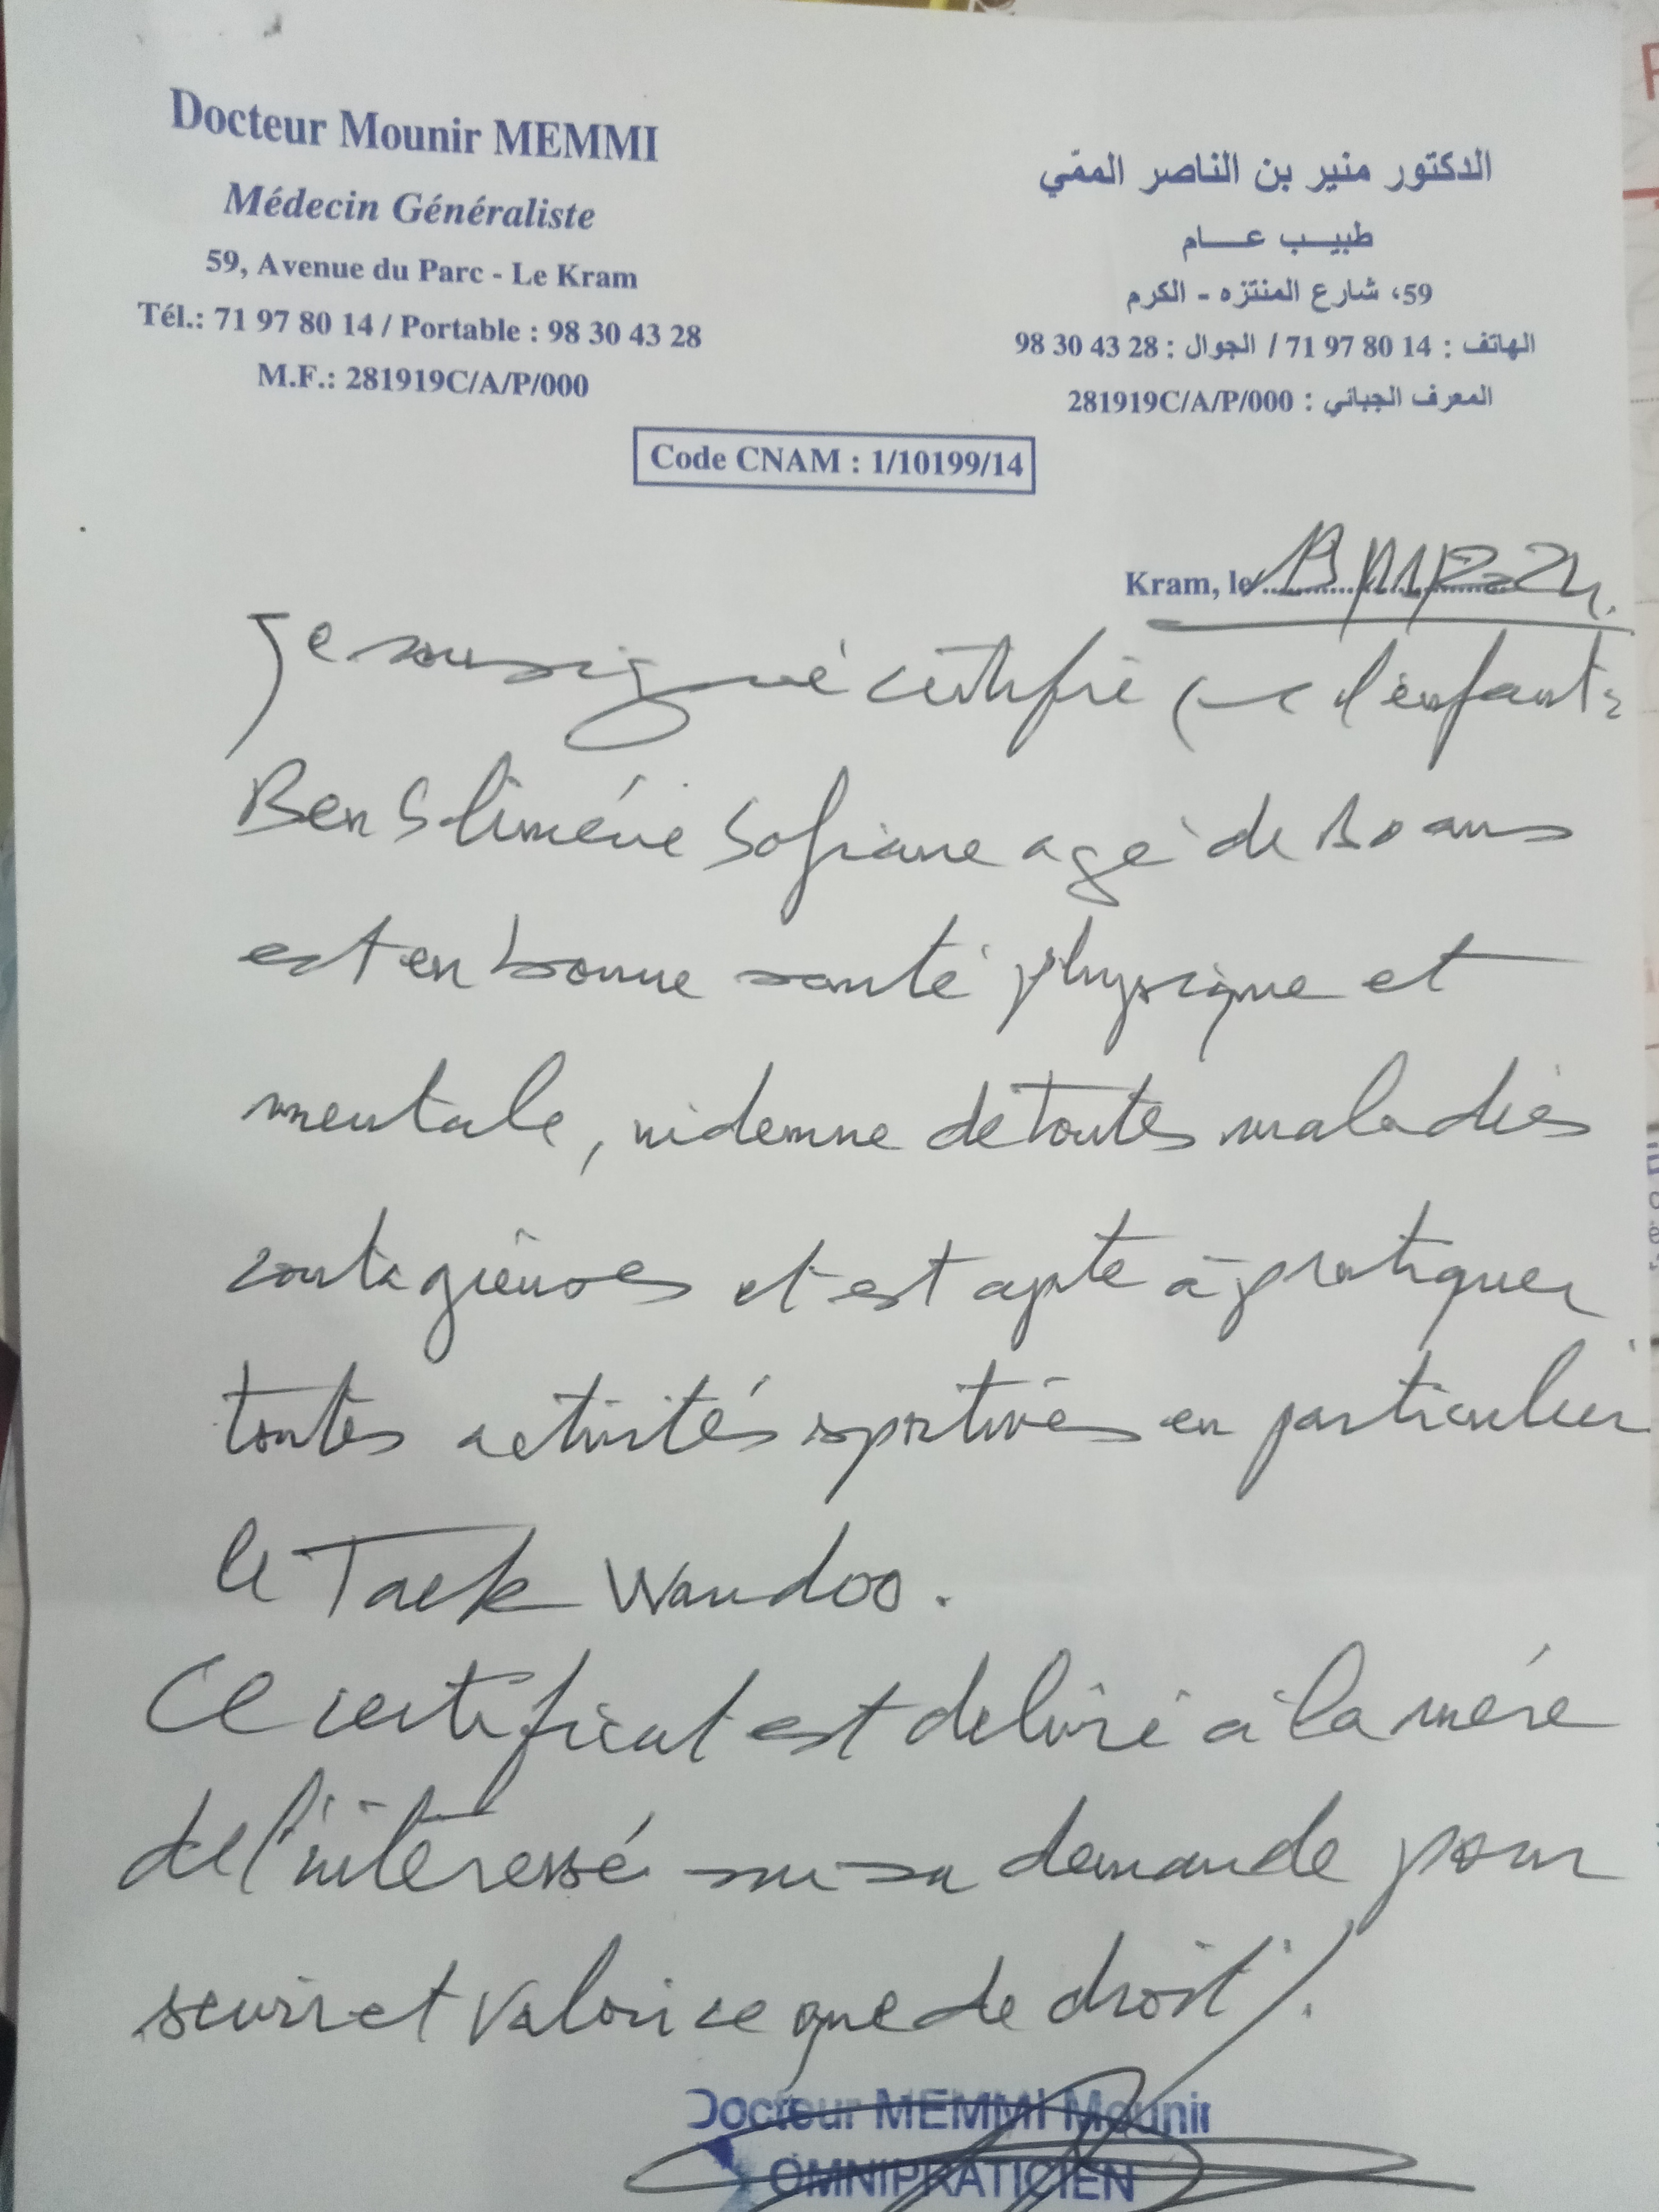 Docteur Mounir MEMMI
Médecin Généraliste
59, Avenue du Parc - Le Kram
Tél.: 71 97 80 14 / Portable : 98 30 43 28
M.F.: 281919C/A/P/000
الدكتور منير بن الناصر الممّي
طبيب عام
59، شارع المنتزه - الكرم
الهاتف : 14 80 97 71 / الجوال : 28 43 30 98
المعرف الجبائي : 281919C/A/P/000
Code CNAM : 1/10199/14
Kram, le
Je soussigné certifie que l'enfant:
Ben Sliméne Sofiane agé de 10 ans
est en bonne santé physique et
mentale, indemne de toutes maladies
contagieuses et est apte à pratiquer
toutes activités sportives en particulier
le Taek Wandoo.
Ce certificat est délivré à la mére
de l'intéressé sur sa demande pour
servir et valoir ce que de droit /.
Docteur MEMMI Mounir
OMNIPRATICIEN